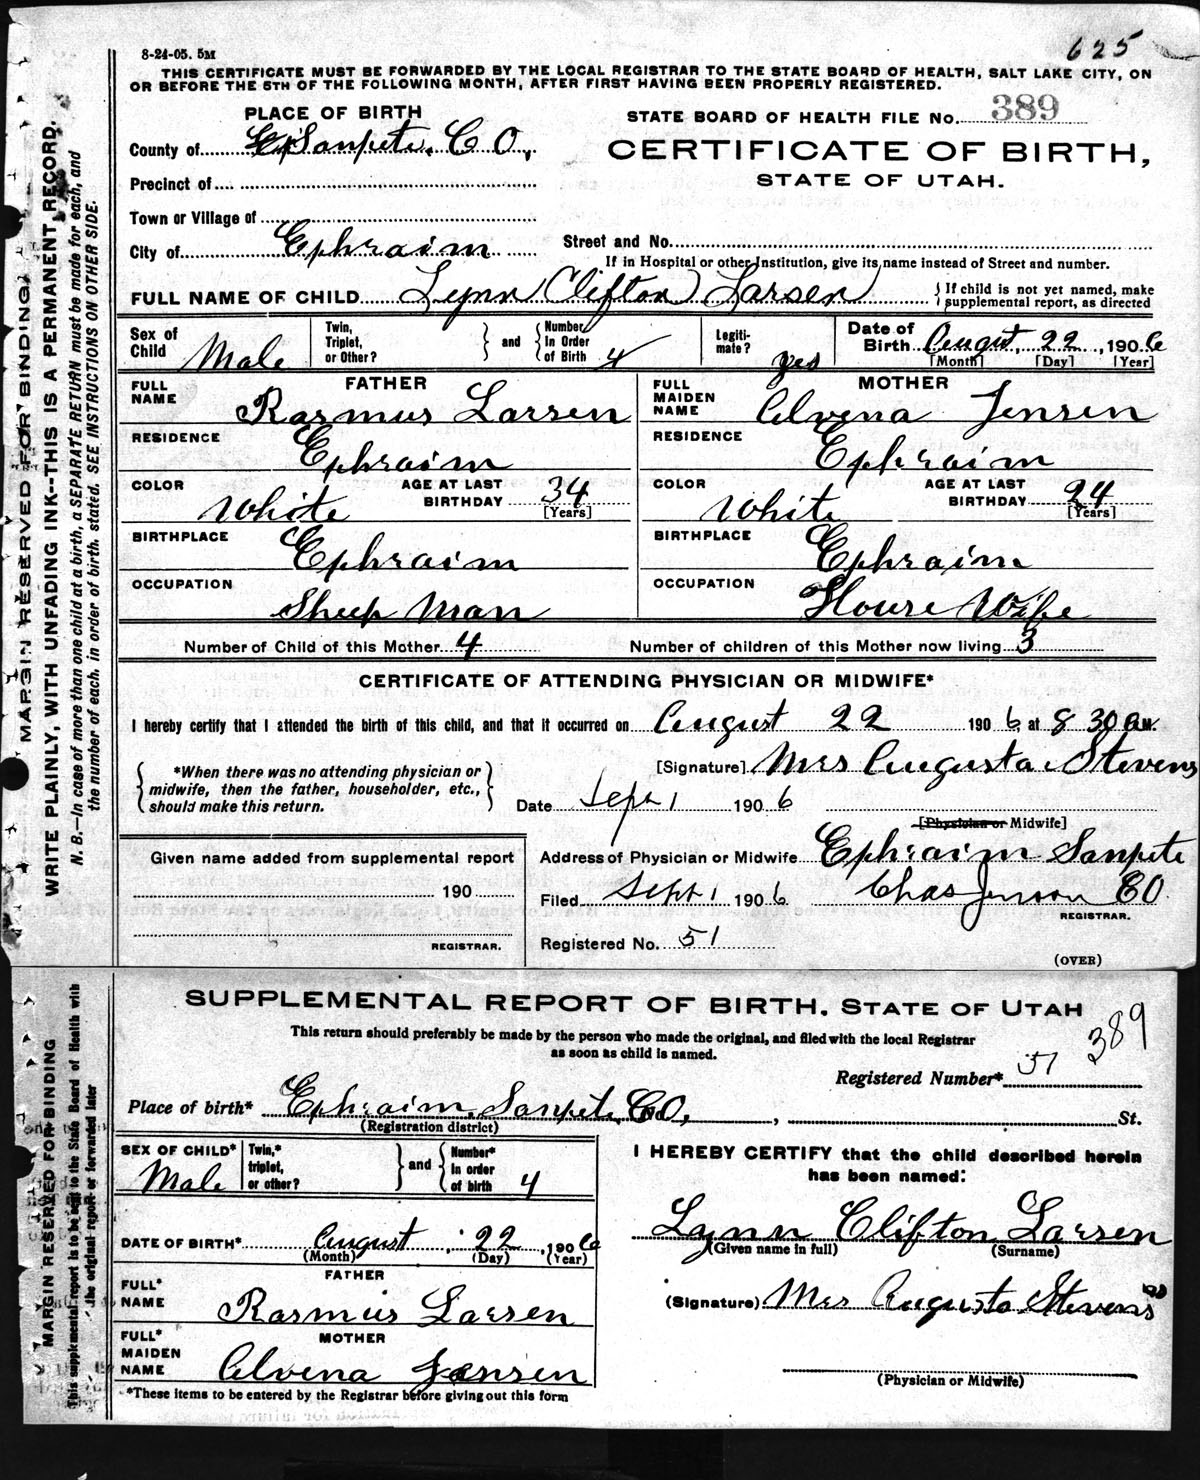 8-24-05. 5M
625
THIS CERTIFICATE MUST BE FORWARDED BY THE LOCAL REGISTRAR TO THE STATE BOARD OF HEALTH, SALT LAKE CITY, ON
OR BEFORE THE 5TH OF THE FOLLOWING MONTH, AFTER FIRST HAVING BEEN PROPERLY REGISTERED.
PLACE OF BIRTH
STATE BOARD OF HEALTH FILE No. 389
County of Sanpete. CO,
CERTIFICATE OF BIRTH,
STATE OF UTAH.
Precinct of
Town or Village of
City of Ephraim
Street and No.
If in Hospital or other Institution, give its name instead of Street and number.
FULL NAME OF CHILD Lynn Clifton Larsen
{ If child is not yet named, make
supplemental report, as directed
Sex of Child Male
Twin, Triplet, or Other?
} and {
Number In Order of Birth 4
Legiti- mate? yes
Date of Birth August, 22, 1906
[Month] [Day] [Year]
FATHER
FULL NAME Rasmus Larsen
RESIDENCE Ephraim
COLOR White
AGE AT LAST BIRTHDAY 34
[Years]
BIRTHPLACE Ephraim
OCCUPATION Sheep Man
MOTHER
FULL MAIDEN NAME Alvena Jensen
RESIDENCE Ephraim
COLOR White
AGE AT LAST BIRTHDAY 24
[Years]
BIRTHPLACE Ephraim
OCCUPATION House Wife
Number of Child of this Mother 4
Number of children of this Mother now living 3
CERTIFICATE OF ATTENDING PHYSICIAN OR MIDWIFE*
I hereby certify that I attended the birth of this child, and that it occurred on August 22 1906 at 8 30 a M.
{ *When there was no attending physician or
midwife, then the father, householder, etc.,
should make this return. }
[Signature] Mrs Augusta Stevens
Date Sept 1 1906
[Physician or Midwife]
Given name added from supplemental report
190
REGISTRAR.
Address of Physician or Midwife Ephraim Sanpete
CO
Filed Sept 1 1906 Chas Jenson
REGISTRAR.
Registered No. 51
(OVER)
MARGIN RESERVED FOR BINDING
WRITE PLAINLY, WITH UNFADING INK--THIS IS A PERMANENT RECORD.
N. B.--In case of more than one child at a birth, a SEPARATE RETURN must be made for each, and
the number of each, in order of birth, stated. SEE INSTRUCTIONS ON OTHER SIDE.
SUPPLEMENTAL REPORT OF BIRTH. STATE OF UTAH
This return should preferably be made by the person who made the original, and filed with the local Registrar
as soon as child is named.
389
Registered Number* 51
Place of birth* Ephraim, Sanpete CO, No. , St.
(Registration district)
SEX OF CHILD* Male
Twin,* triplet, or other?
} and {
Number* in order of birth 4
I HEREBY CERTIFY that the child described herein
has been named:
Lynn Clifton Larsen
(Given name in full) (Surname)
DATE OF BIRTH* August 22, 1906
(Month) (Day) (Year)
FATHER
FULL* NAME Rasmus Larsen
(Signature) Mrs Augusta Stevens
MOTHER
FULL* MAIDEN NAME Alvena Jensen
(Physician or Midwife)
*These items to be entered by the Registrar before giving out this form
MARGIN RESERVED FOR BINDING
This supplemental report is to be sent to the State Board of Health with
the original report or forwarded later